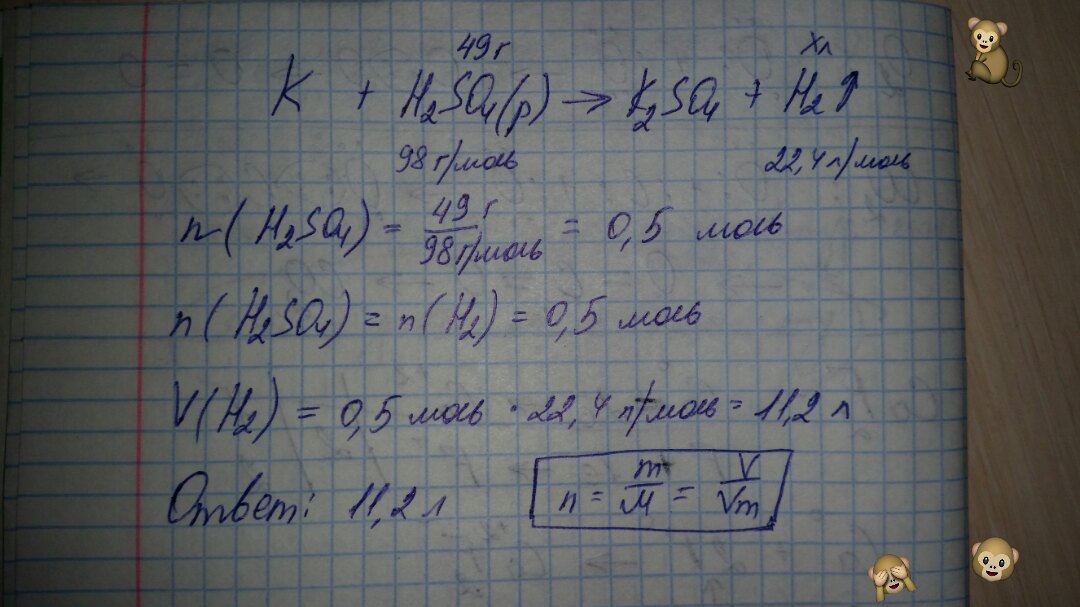 49 г хл
K + H₂SO₄(р) → K₂SO₄ + H₂↑
98 г/моль 22,4 л/моль
n(H₂SO₄) = 49 г/98 г/моль = 0,5 моль
n(H₂SO₄) = n(H₂) = 0,5 моль
V(H₂) = 0,5 моль · 22,4 л/моль = 11,2 л
Ответ: 11,2 л
n = m/M = V/Vm